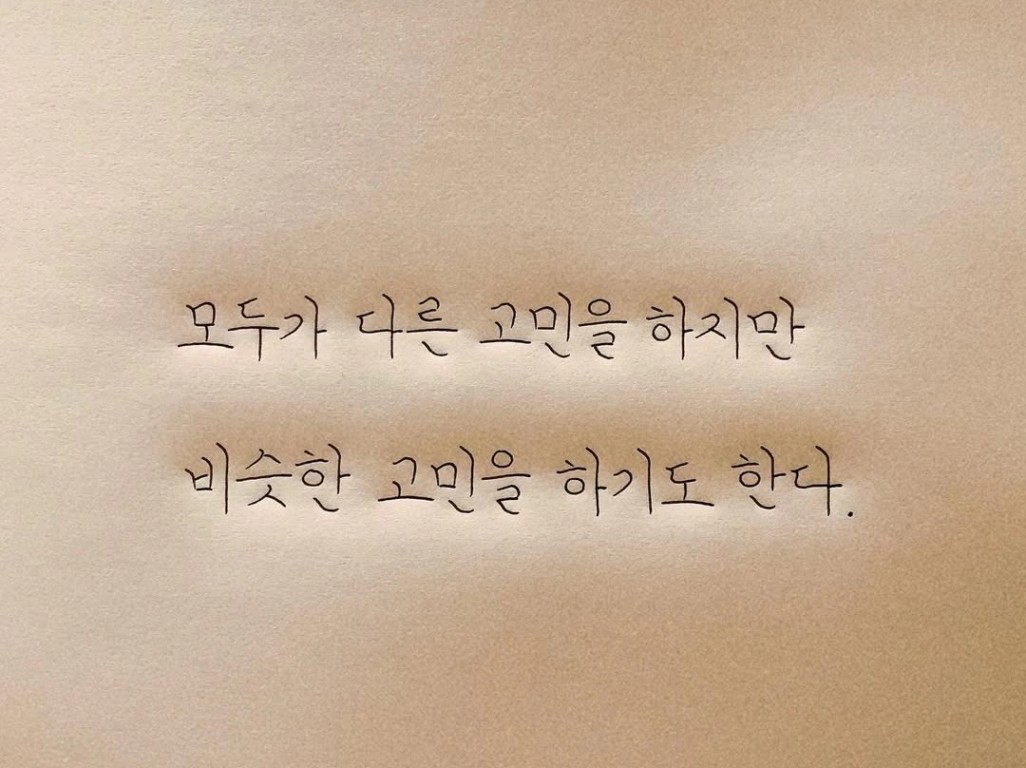 모두가 다른 고민을 하지만
비슷한 고민을 하기도 한다.